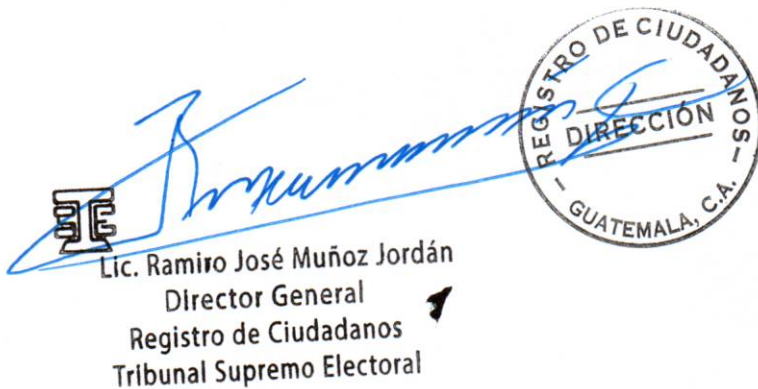 REGISTRO DE CIUDADANOS
DIRECCIÓN
– GUATEMALA, C.A. –
Lic. Ramiro José Muñoz Jordán
Director General
Registro de Ciudadanos
Tribunal Supremo Electoral